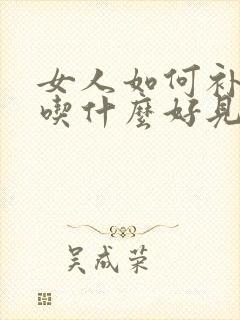 女人如何补
喫什麽好見
吴成荣